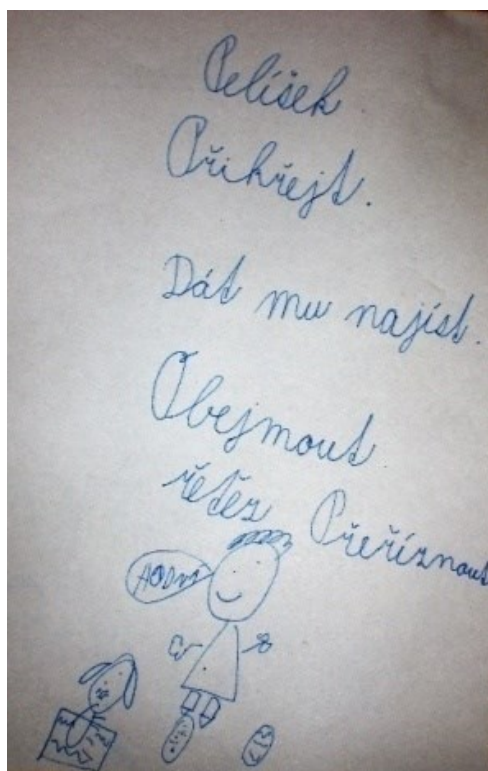 Pelíšek
Přihřejt.
Dát mu najíst.
Obejmout
řetěz Přeříznout